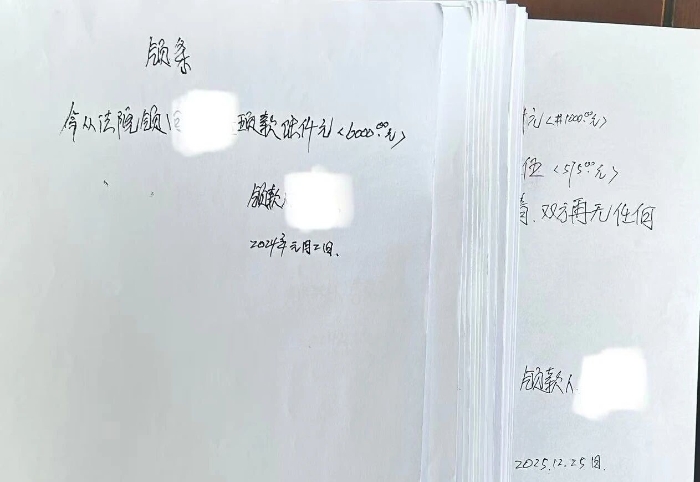 领条
今从法院领
款陆仟元<6000.00元>
领款
2024年元月2日.
元<#1000.00元>
伍<575.00元>
双方再无任何
领款人
2025.12.25日.